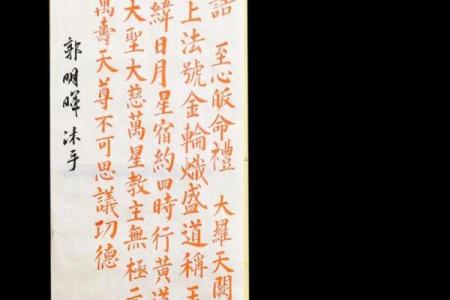 誥 至心皈命禮 大羅天闕
上法號金輪熾盛道稱
緯日月星宿約四時行黃道
大聖大慈萬星教主無極元
萬壽天尊不可思議功德
郭明暉沐手